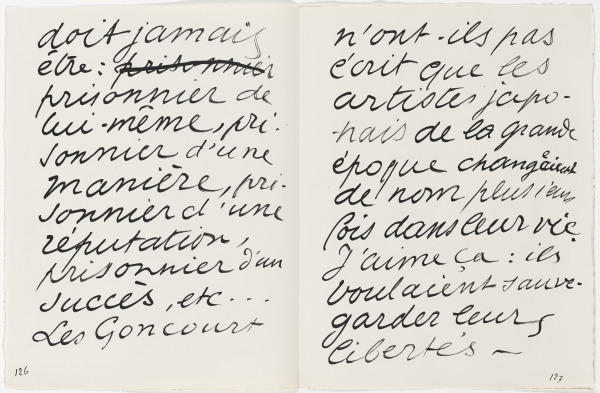 doit jamais
être : prisonnier
prisonnier de
lui-même, pri-
sonnier d'une
manière, pri-
sonnier d'une
réputation,
prisonnier d'un
succès, etc...
Les Goncourt
126
n'ont-ils pas
écrit que les
artistes japo-
nais de la grande
époque changeaient
de nom plusieurs
fois dans leur vie
J'aime ça : ils
voulaient sauve-
garder leurs
libertés –
127